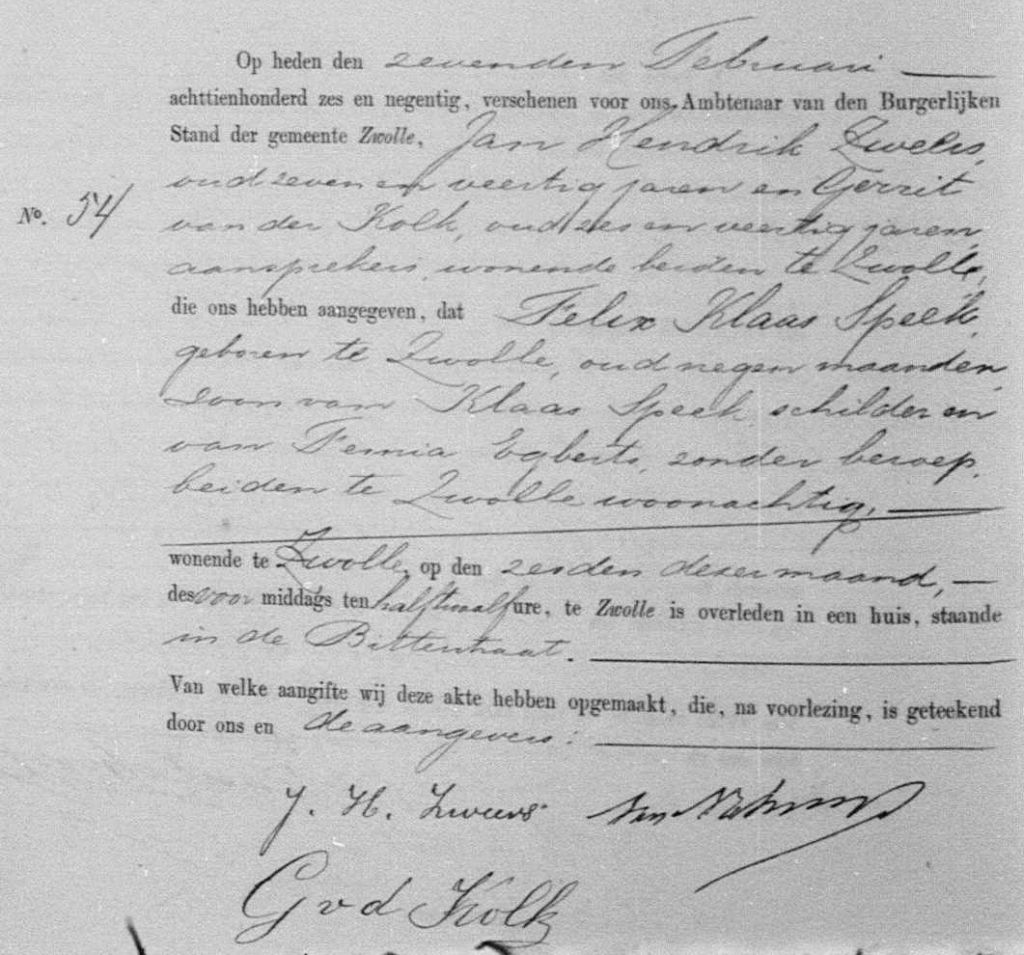 Op heden den zevenden Februari
achttienhonderd zes en negentig, verschenen voor ons, Ambtenaar van den Burgerlijken
Stand der gemeente Zwolle, Jan Hendrik Zweers,
oud zeven en veertig jaren en Gerrit
No. 54
van der Kolk, oud zes en veertig jaren,
aansprekers, wonende beiden te Zwolle,
die ons hebben aangegeven, dat Felix Klaas Speek,
geboren te Zwolle, oud negen maanden,
zoon van Klaas Speek, schilder en
van Femia Egberts, zonder beroep,
beiden te Zwolle woonachtig,
wonende te Zwolle, op den zesden dezer maand,
des voor middags ten half twaalf ure, te Zwolle is overleden in een huis, staande
in de Bitterstraat.
Van welke aangifte wij deze akte hebben opgemaakt, die, na voorlezing, is geteekend
door ons en de aangevers:
J. H. Zweers
G v d Kolk